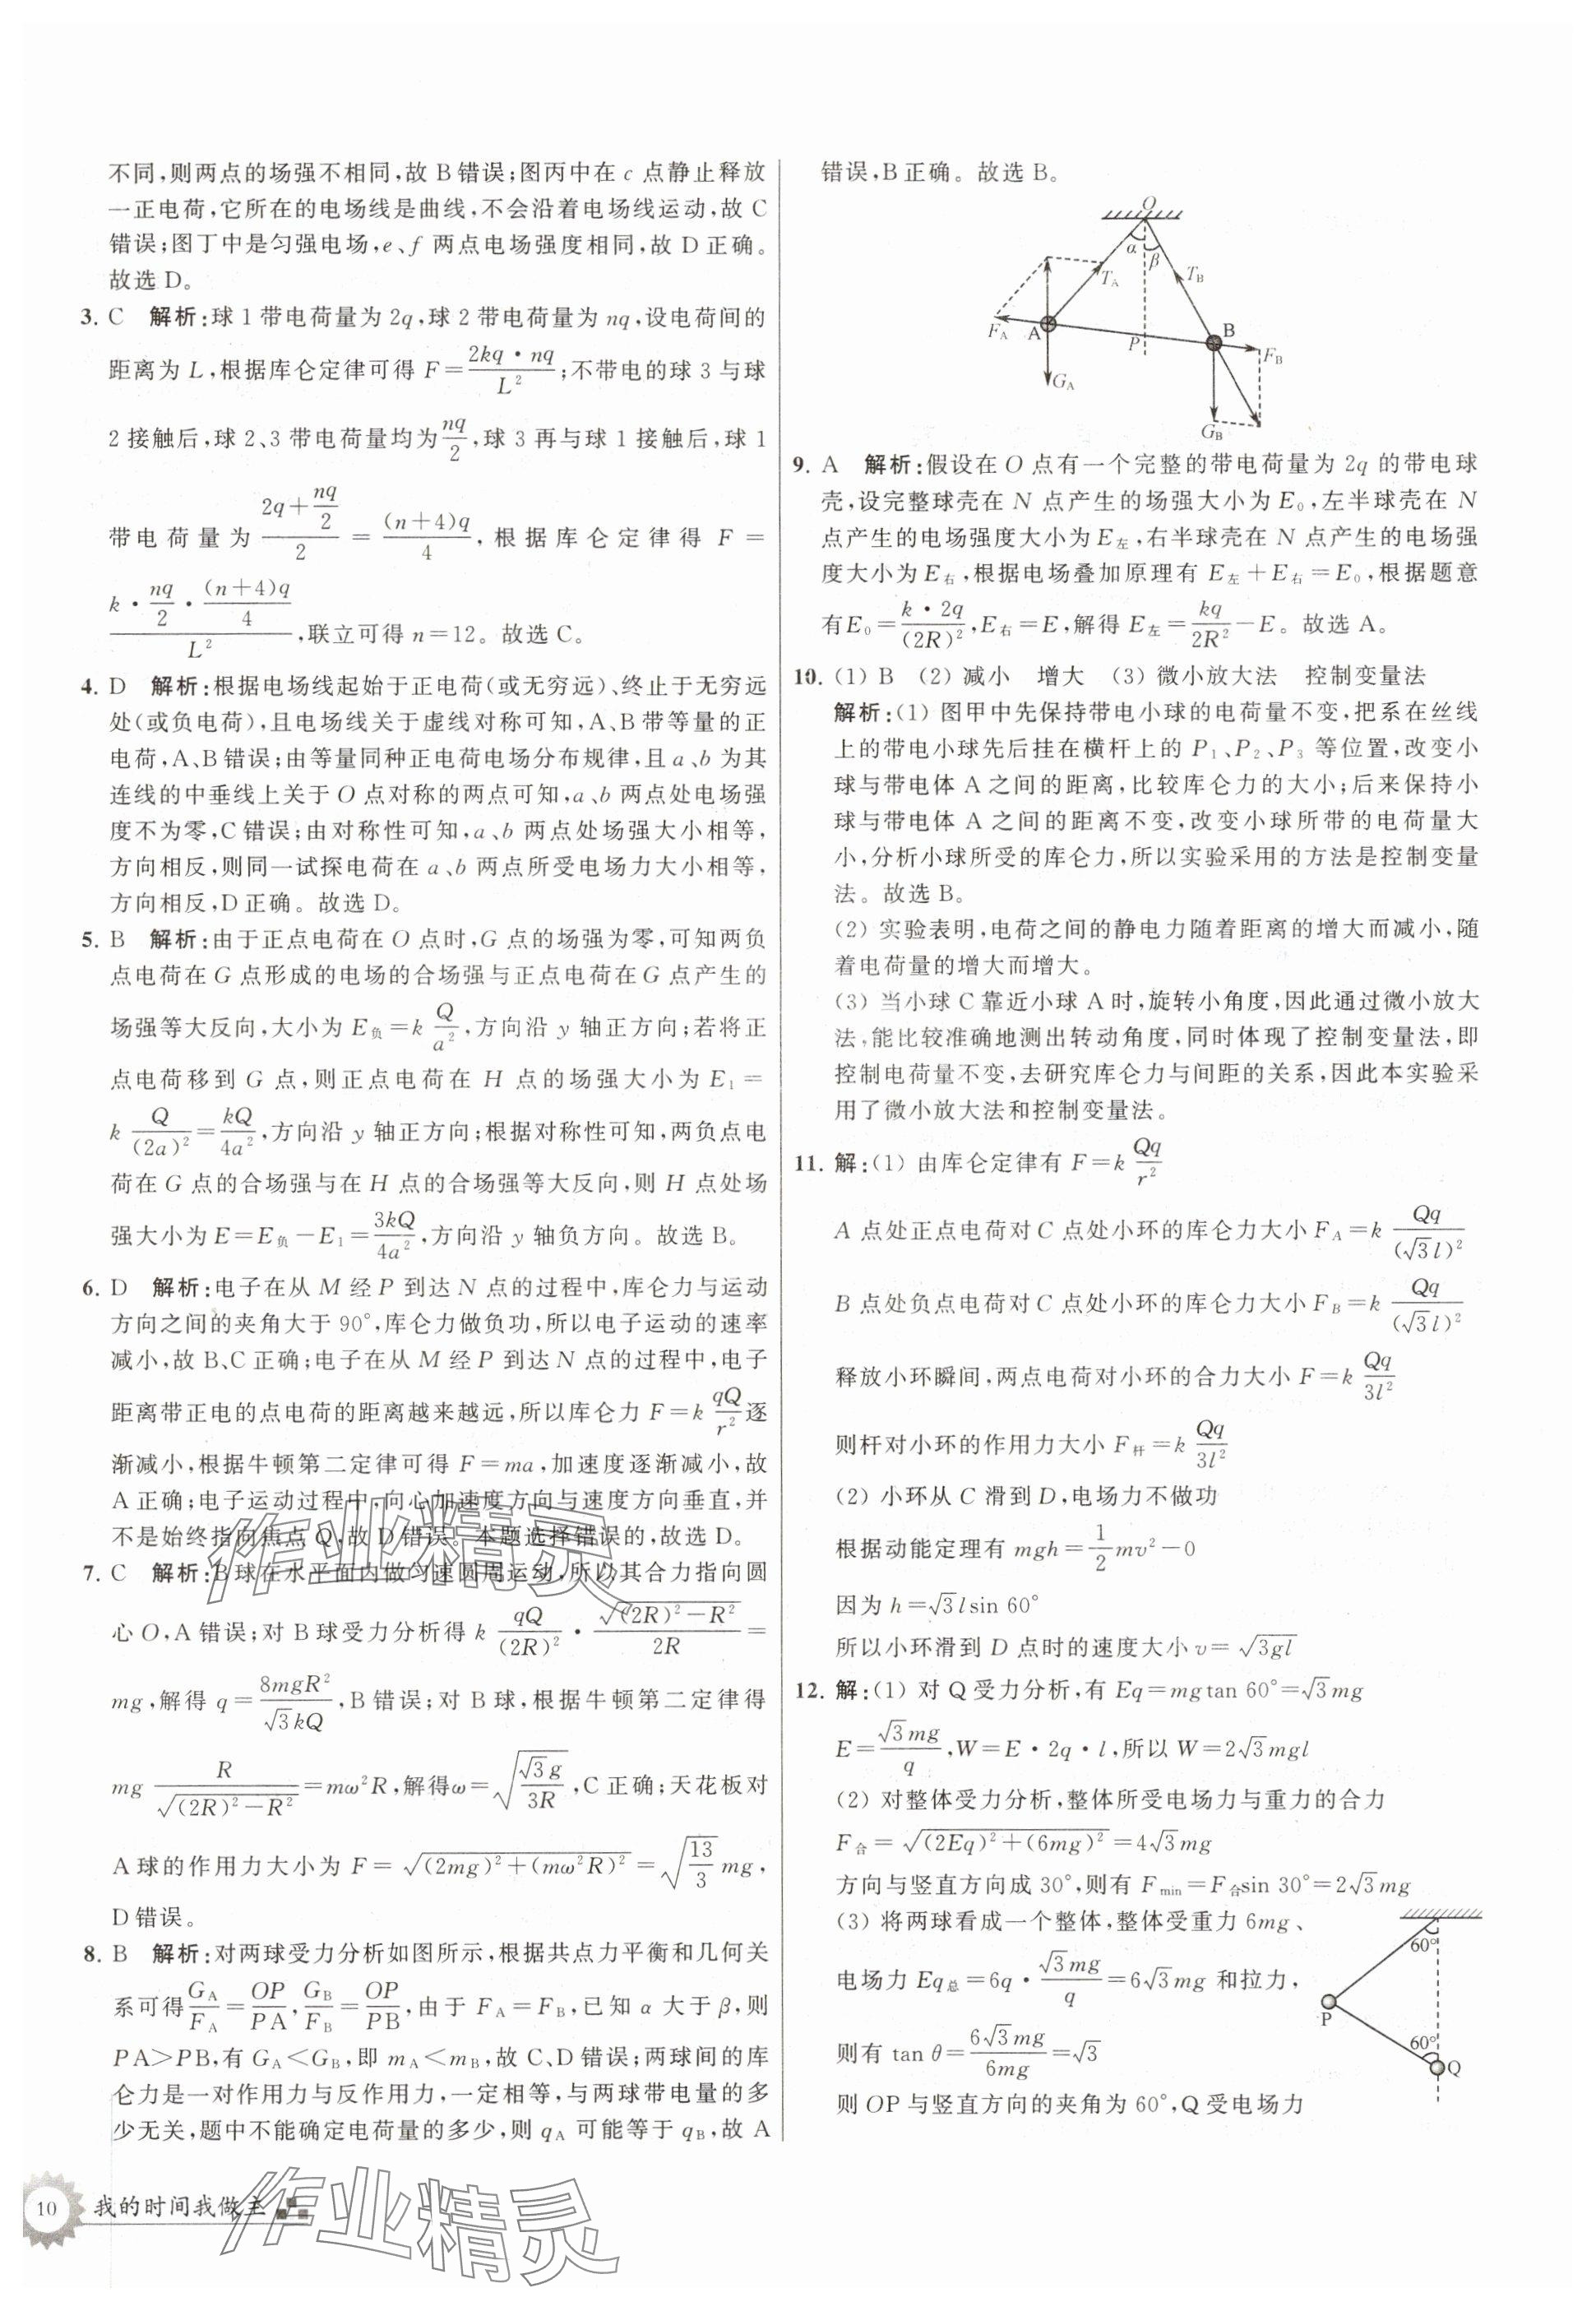 不同,则两点的场强不相同,故 B 错误;图丙中在 c 点静止释放
一正电荷,它所在的电场线是曲线,不会沿着电场线运动,故 C
错误;图丁中是匀强电场,e、f 两点电场强度相同,故 D 正确。
故选 D。
3. C 解析:球 1 带电荷量为 2q,球 2 带电荷量为 nq,设电荷间的
距离为 L,根据库仑定律可得 F=2kq·nq/L²;不带电的球 3 与球
2 接触后,球 2、3 带电荷量均为 nq/2,球 3 再与球 1 接触后,球 1
带电荷量为 (2q+nq/2)/2 = (n+4)q/4,根据库仑定律得 F=
k·nq/2·(n+4)q/4 / L²,联立可得 n=12。故选 C。
4. D 解析:根据电场线起始于正电荷(或无穷远)、终止于无穷远
处(或负电荷),且电场线关于虚线对称可知,A、B 带等量的正
电荷,A、B 错误;由等量同种正电荷电场分布规律,且 a、b 为其
连线的中垂线上关于 O 点对称的两点可知,a、b 两点处电场强
度不为零,C 错误;由对称性可知,a、b 两点处场强大小相等,
方向相反,则同一试探电荷在 a、b 两点所受电场力大小相等,
方向相反,D 正确。故选 D。
5. B 解析:由于正点电荷在 O 点时,G 点的场强为零,可知两负
点电荷在 G 点形成的电场的合场强与正点电荷在 G 点产生的
场强等大反向,大小为 E负=k Q/a²,方向沿 y 轴正方向;若将正
点电荷移到 G 点,则正点电荷在 H 点的场强大小为 E₁=
k Q/(2a)²=kQ/4a²,方向沿 y 轴正方向;根据对称性可知,两负点电
荷在 G 点的合场强与在 H 点的合场强等大反向,则 H 点处场
强大小为 E=E负-E₁=3kQ/4a²,方向沿 y 轴负方向。故选 B。
6. D 解析:电子在从 M 经 P 到达 N 点的过程中,库仑力与运动
方向之间的夹角大于 90°,库仑力做负功,所以电子运动的速率
减小,故 B、C 正确;电子在从 M 经 P 到达 N 点的过程中,电子
距离带正电的点电荷的距离越来越远,所以库仑力 F=k qQ/r² 逐
渐减小,根据牛顿第二定律可得 F=ma,加速度逐渐减小,故
A 正确;电子运动过程中,向心加速度方向与速度方向垂直,并
不是始终指向焦点 Q,故 D 错误。本题选择错误的,故选 D。
7. C 解析:B 球在水平面内做匀速圆周运动,所以其合力指向圆
心 O,A 错误;对 B 球受力分析得 k qQ/(2R)²·√((2R)²-R²)/2R=
mg,解得 q=8mgR²/√3kQ,B 错误;对 B 球,根据牛顿第二定律得
mg R/√((2R)²-R²)=mω²R,解得ω=√(√3g/3R),C 正确;天花板对
A 球的作用力大小为 F=√((2mg)²+(mω²R)²)=√(13/3)mg,
D 错误。
8. B 解析:对两球受力分析如图所示,根据共点力平衡和几何关
系可得 G_A/F_A=OP/PA,G_B/F_B=OP/PB,由于 F_A=F_B,已知 α 大于 β,则
PA>PB,有 G_A<G_B,即 m_A<m_B,故 C、D 错误;两球间的库
仑力是一对作用力与反作用力,一定相等,与两球带电量的多
少无关,题中不能确定电荷量的多少,则 q_A 可能等于 q_B,故 A
错误,B 正确。故选 B。
O
α
β
T_A
T_B
F_A
A
P
B
F_B
G_A
G_B
9. A 解析:假设在 O 点有一个完整的带电荷量为 2q 的带电球
壳,设完整球壳在 N 点产生的场强大小为 E₀,左半球壳在 N
点产生的电场强度大小为 E左,右半球壳在 N 点产生的电场强
度大小为 E右,根据电场叠加原理有 E左+E右=E₀,根据题意
有 E₀=k·2q/(2R)²,E右=E,解得 E左=kq/2R²-E。故选 A。
10. (1) B (2) 减小 增大 (3) 微小放大法 控制变量法
解析:(1) 图甲中先保持带电小球的电荷量不变,把系在丝线
上的带电小球先后挂在横杆上的 P₁、P₂、P₃ 等位置,改变小
球与带电体 A 之间的距离,比较库仑力的大小;后来保持小
球与带电体 A 之间的距离不变,改变小球所带的电荷量大
小,分析小球所受的库仑力,所以实验采用的方法是控制变量
法。故选 B。
(2) 实验表明,电荷之间的静电力随着距离的增大而减小,随
着电荷量的增大而增大。
(3) 当小球 C 靠近小球 A 时,旋转小角度,因此通过微小放大
法,能比较准确地测出转动角度,同时体现了控制变量法,即
控制电荷量不变,去研究库仑力与间距的关系,因此本实验采
用了微小放大法和控制变量法。
11. 解:(1) 由库仑定律有 F=k Qq/r²
A 点处正点电荷对 C 点处小环的库仑力大小 F_A=k Qq/(√3l)²
B 点处负点电荷对 C 点处小环的库仑力大小 F_B=k Qq/(√3l)²
释放小环瞬间,两点电荷对小环的合力大小 F=k Qq/3l²
则杆对小环的作用力大小 F杆=k Qq/3l²
(2) 小环从 C 滑到 D,电场力不做功
根据动能定理有 mgh=1/2 mv²-0
因为 h=√3lsin 60°
所以小环滑到 D 点时的速度大小 v=√(3gl)
12. 解:(1) 对 Q 受力分析,有 Eq=mgtan 60°=√3mg
E=√3mg/q,W=E·2q·l,所以 W=2√3mgl
(2) 对整体受力分析,整体所受电场力与重力的合力
F合=√((2Eq)²+(6mg)²)=4√3mg
方向与竖直方向成 30°,则有 F_min=F合sin 30°=2√3mg
(3) 将两球看成一个整体,整体受重力 6mg、
电场力 Eq总=6q·√3mg/q=6√3mg 和拉力,
则有 tan θ=6√3mg/6mg=√3
则 OP 与竖直方向的夹角为 60°,Q 受电场力
60°
P
60°
Q
10 我的时间我做主
作业精灵
作业精灵